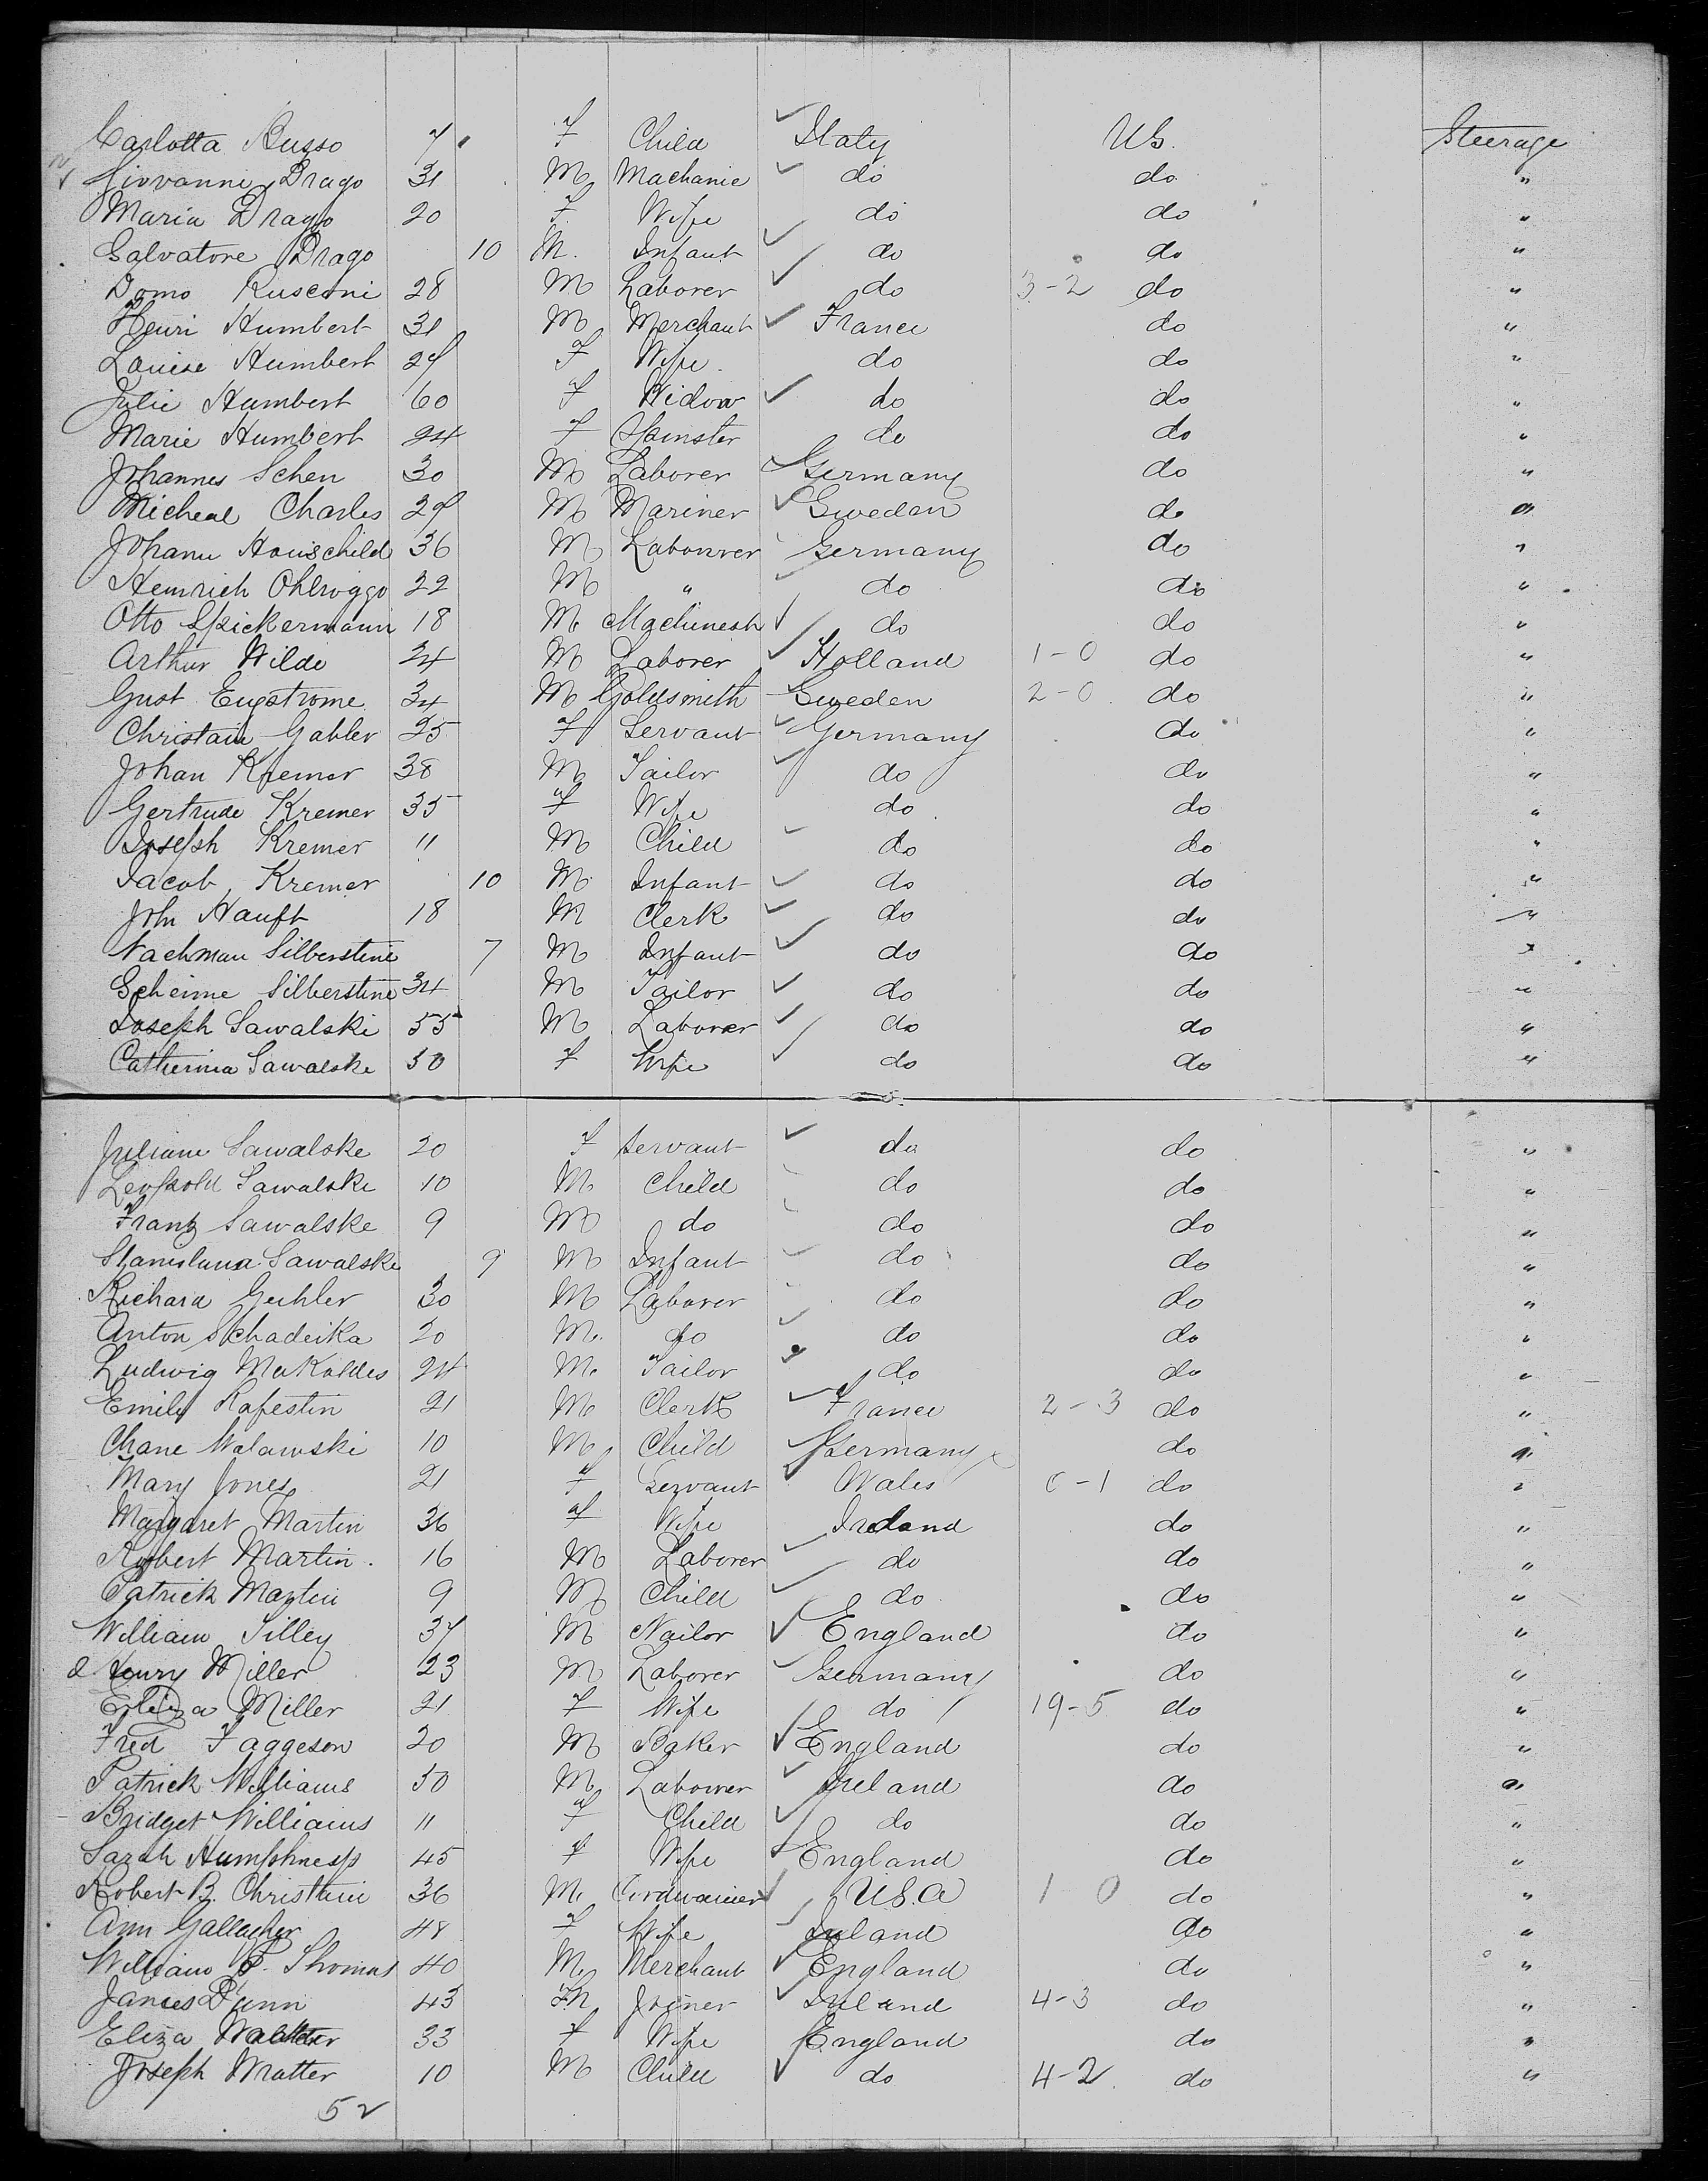 Carlotta Russo 7 F Child Italy US. Steerage
Giovanni Drago 31 M Machanic do do "
Maria Drago 20 F Wife do do "
Salvatore Drago 10 M. Infant do do "
Domo Rusconi 28 M Laborer do 3-2 do "
Henri Humbert 31 M Merchant France do "
Louise Humbert 27 F Wife do do "
Julie Humbert 60 F Widow do do "
Marie Humbert 24 F Spinster do do "
Johannes Schen 30 M Laborer Germany do "
Micheal Charles 27 M Mariner Sweden do "
Johann Houschild 36 M Labourer Germany do "
Heinrich 22 M " do do "
Otto Spickermann 18 M Machinest do do "
Arthur Wilde 24 M Laborer Holland 1-0 do "
Gust Engstrome 34 M Goldsmith Sweden 2-0 do "
Christain Gabler 25 F Servant Germany do "
Johan Kremer 38 M Tailor do do "
Gertrude Kremer 35 F Wife do do "
Joseph Kremer 11 M Child do do "
Jacob Kremer 10 M Infant do do "
John Hauft 18 M Clerk do do "
Nachman Silberstine 7 M Infant do do "
Scheime Silberstine 34 M Tailor do do "
Joseph Sawalski 55 M Laborer do do "
Catherina Sawalske 50 F Wife do do "
Juliane Sawalske 20 F Servant do do "
Leopold Sawalske 10 M Child do do "
Frantz Sawalske 9 M do do do "
Sawalske 9 M Infant do do "
Richard Gechler 30 M Laborer do do "
Anton Schadeika 20 M. do do do "
Ludwig MaKoldes 24 M. Tailor do do "
Emile Rafestin 21 M Clerk France 2-3 do "
Chane Walawski 10 M Child Germany do "
Mary Jones 21 F Servant Wales 0-1 do "
Margaret Martin 36 F Wife Ireland do "
Robert Martin. 16 M Laborer do do "
Patrick Martin 9 M Child do do "
William Tilley 37 M Nailor England do "
Henry Miller 23 M Laborer Germany do "
Eliza Miller 21 F Wife do 19-5 do "
Fred Faggeson 20 M Baker England do "
Patrick Williams 50 M Labourer Ireland do "
Bridget Williams 11 F Child do do "
Sarah Humphneys 45 F Wife England do "
Robert B. Christain 36 M Cordwainer U.S.A 1 0 do "
Ann Gallagher 48 F Wife Ireland do "
William P. Thomas 40 M. Merchant England do "
James Dunn 43 M Joiner Ireland 4-3 do "
Eliza 33 F Wife England do "
Joseph Wratter 10 M Child do 4-2 do "
52